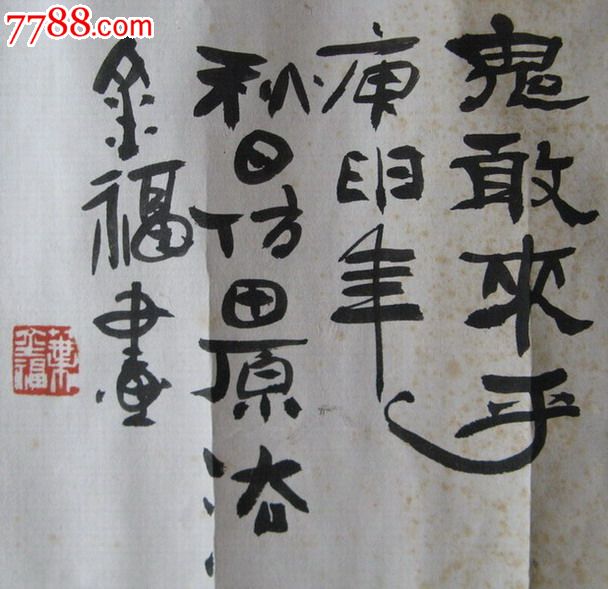 7788.com
鬼敢來乎
庚申年
秋日仿田原法
金福畫
葉金福